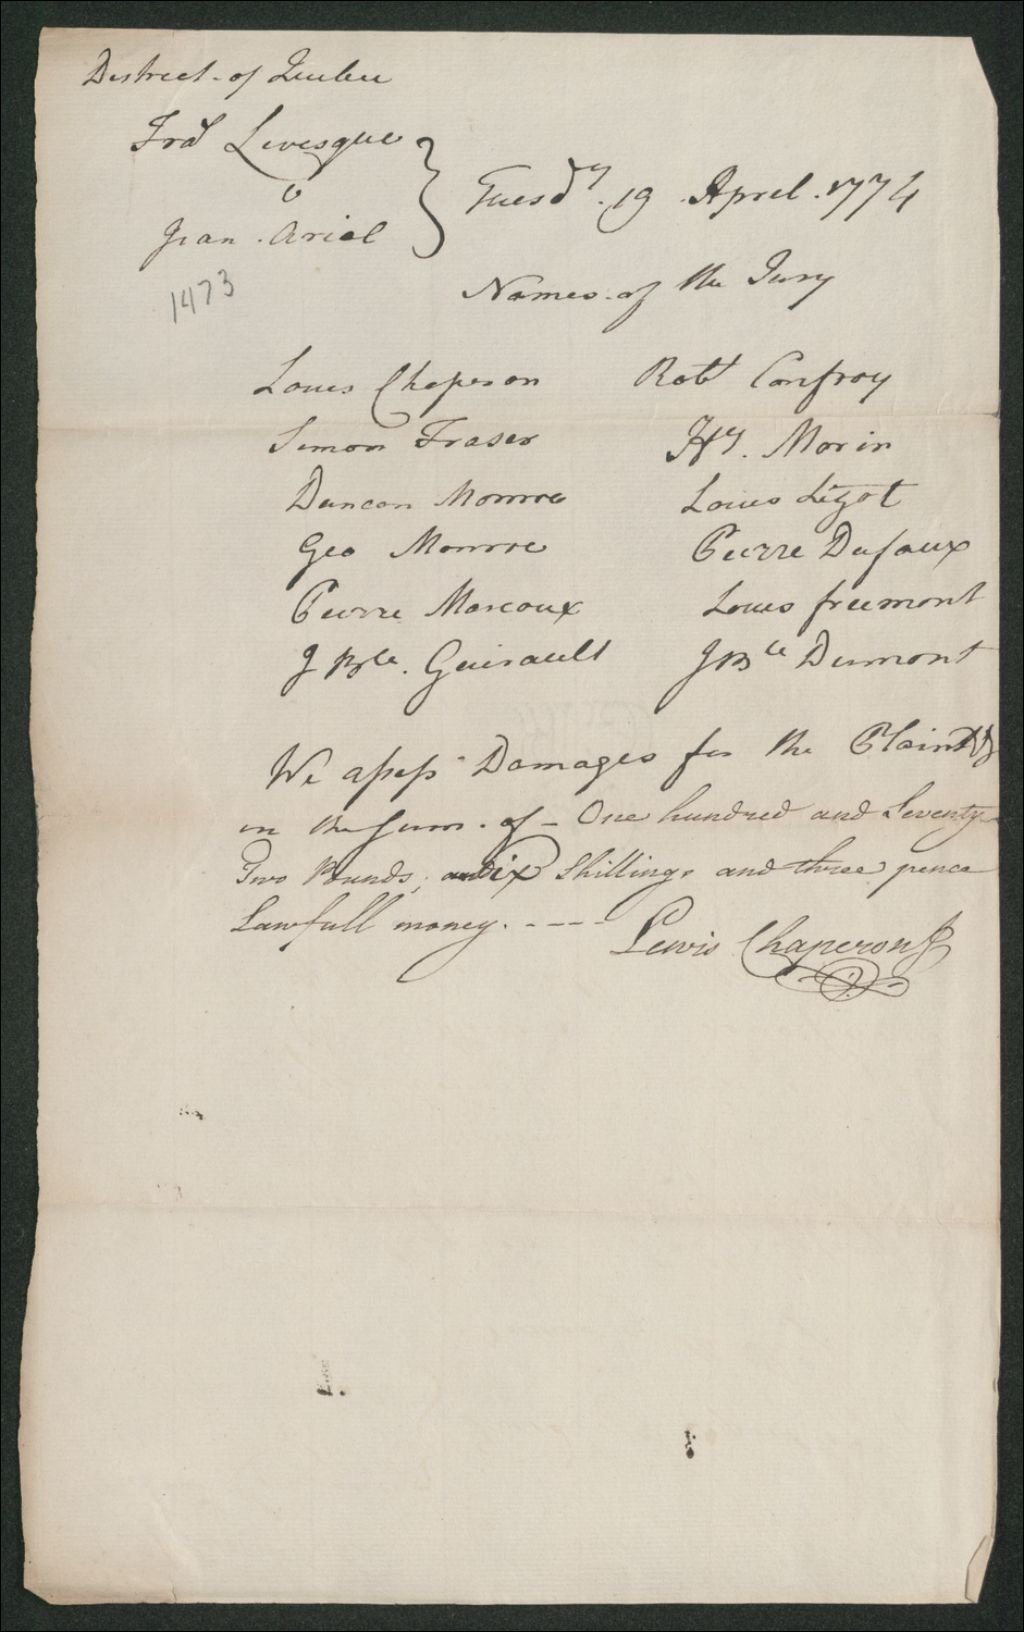 District of Quebec
Fra^s Levesque
v
Jean Ariel
Tuesd^y. 19 April. 1774
1473
Names of the Jury
Louis Chaperon
Simon Fraser
Duncan Monroe
Geo Monroe
Pierre Marcoux
J Bte. Guirault
Rob^t Confroy
H^y. Morin
Louis Lizot
Pierre Dufaux
Louis freemont
J B^te Dumont
We assess Damages for the Plaintiff
in the Sum of - One hundred and Seventy
Two Pounds, Six Shillings and three pence
Lawfull money. - - - -
Lewis Chaperon